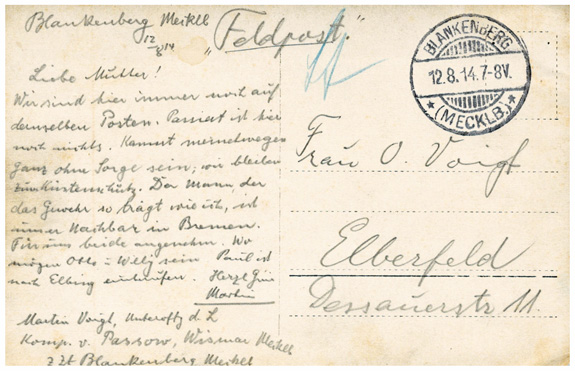 Blankenberg Meckll
12/8 14
"Feldpost."
BLANKENBERG
12.8.14.7-8V.
* (MECKLB.) *
Liebe Mutter!
Wir sind hier immer noch auf
demselben Posten. Passiert ist hier
noch nichts. Kannst meinetwegen
ganz ohne Sorge sein; wir bleiben
zum Küstenschutz. Der Mann, der
das Gewehr so trägt wie ich, ist
unser Nachbar in Bremen.
Für uns beide angenehm. Wo
mögen Otto u. Willy sein Paul ist
nach Elbing einberufen. Herzl Gruß
Martin
Martin Voigt, Unteroffz d. L
Komp. v. Passow, Wismar Meckll
z Zt Blankenberg Meckll
Frau O. Voigt
Elberfeld
Dessauerstr 11.